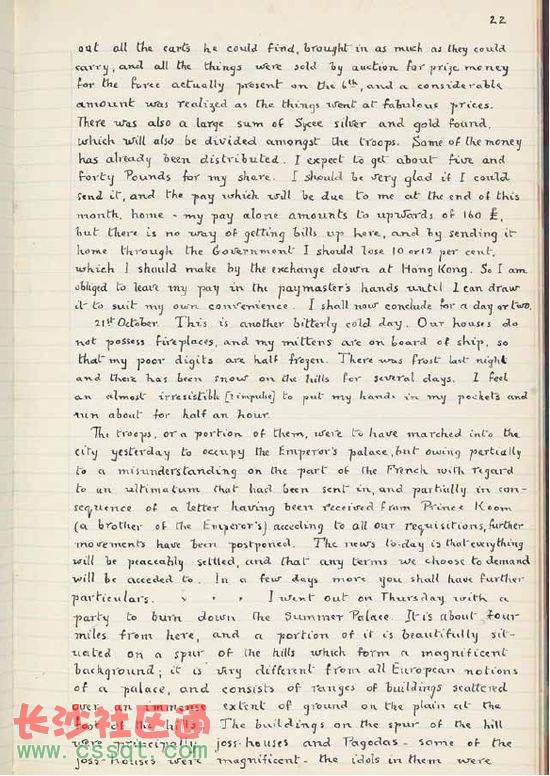 22
out all the carts he could find, brought in as much as they could
carry, and all the things were sold by auction for prize money
for the force actually present on the 6th, and a considerable
amount was realized as the things went at fabulous prices.
There was also a large sum of Sycee silver and gold found,
which will also be divided amongst the troops. Some of the money
has already been distributed. I expect to get about five and
forty Pounds for my share. I should be very glad if I could
send it, and the pay which will be due to me at the end of this
month, home - my pay alone amounts to upwards of 160 £,
but there is no way of getting bills up here, and by sending it
home through the Government I should lose 10 or 12 per cent,
which I should make by the exchange down at Hong Kong. So I am
obliged to leave my pay in the paymaster's hands until I can draw
it to suit my own convenience. I shall now conclude for a day or two.
21st October. This is another bitterly cold day. Our houses do
not possess fireplaces, and my mittens are on board of ship, so
that my poor digits are half frozen. There was frost last night
and there has been snow on the hills for several days. I feel
an almost irresistible [? impulse] to put my hands in my pockets and
run about for half an hour.
The troops, or a portion of them, were to have marched into the
city yesterday to occupy the Emperor's palace, but owing partially
to a misunderstanding on the part of the French with regard
to an ultimatum that had been sent in, and partially in con-
sequence of a letter having been received from Prince Koom
(a brother of the Emperor's) acceding to all our requisitions, further
movements have been postponed. The news to-day is that everything
will be peaceably settled, and that any terms we choose to demand
will be acceded to. In a few days more you shall have further
particulars. I went out on Thursday with a
party to burn down the Summer Palace. It is about four
miles from here, and a portion of it is beautifully sit-
uated on a spur of the hills which form a magnificent
background; it is very different from all European notions
of a palace, and consists of ranges of buildings scattered
over an immense extent of ground on the plain at the
foot of the hills. The buildings on the spur of the hill
were principally joss-houses and Pagodas - some of the
joss-houses were magnificent - the idols in them were
长沙社区通
www.cssqt.com